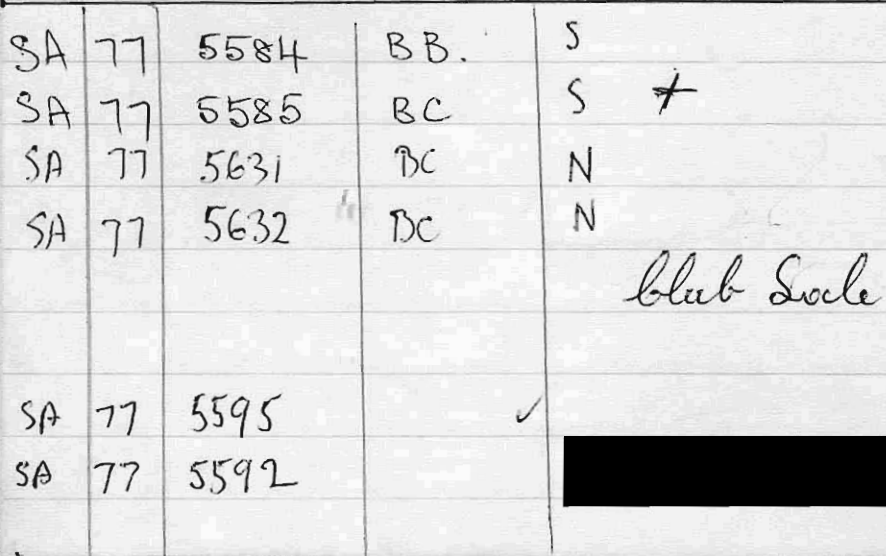 SA 77 5584 BB. S
SA 77 5585 BC S
SA 77 5631 BC N
SA 77 5632 BC N
SA 77 5595 ✓
SA 77 5592